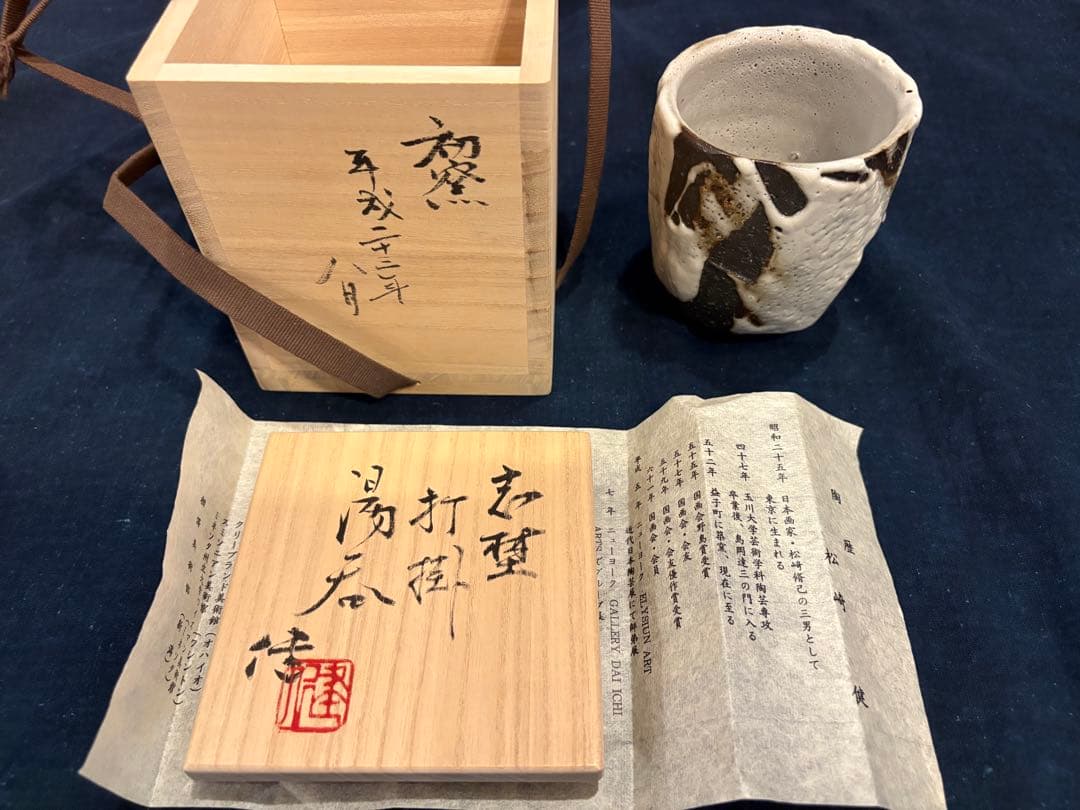 初窯
平成二十二年
八月
志埜
打掛
湯呑
健
健
陶歴 松崎 健
昭和二十五年 日本画家・松崎脩己の三男として
東京に生まれる
四十七年 玉川大学芸術学科陶芸専攻
卒業後、島岡達三の門に入る
五十二年 益子町に築窯、現在に至る
五十五年 国画会野島賞受賞
五十七年 国画会・会友
五十九年 国画会・会友優作賞受賞
六十一年 国画会・会員
平成 五 年 ニューヨーク ELYSIUN ART
近代日本陶芸展にて師弟展
七 年 ニューヨーク GALLERY DAI ICHI
ARTS
クリーブランド美術館(オハイオ)
スミソニアン美術館